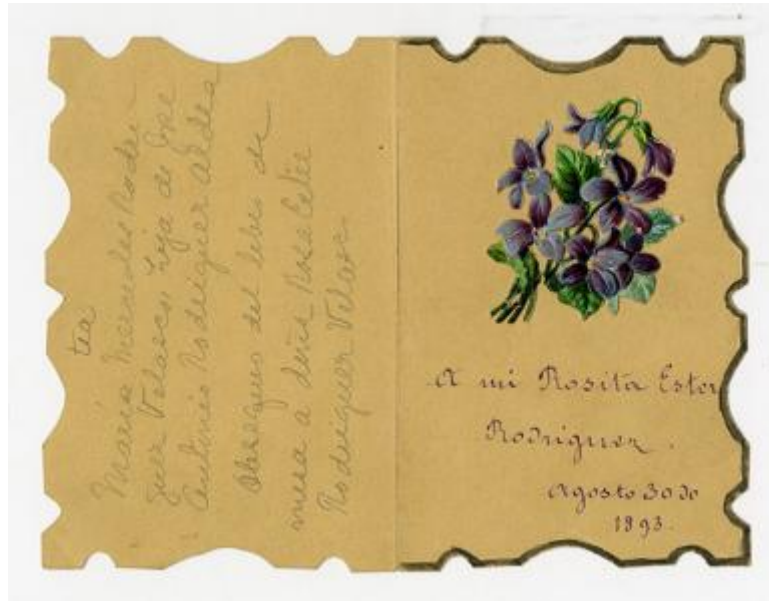 tea
María Mercedes Rodri-
guez Velasco hija de José
Antonio Rodriguez Aldea
Obsequios del lebes de
misa a doña Rosa Ester
Rodriguez Velasc.
A mi Rosita Ester
Rodriguez.
Agosto 30 de
1893.